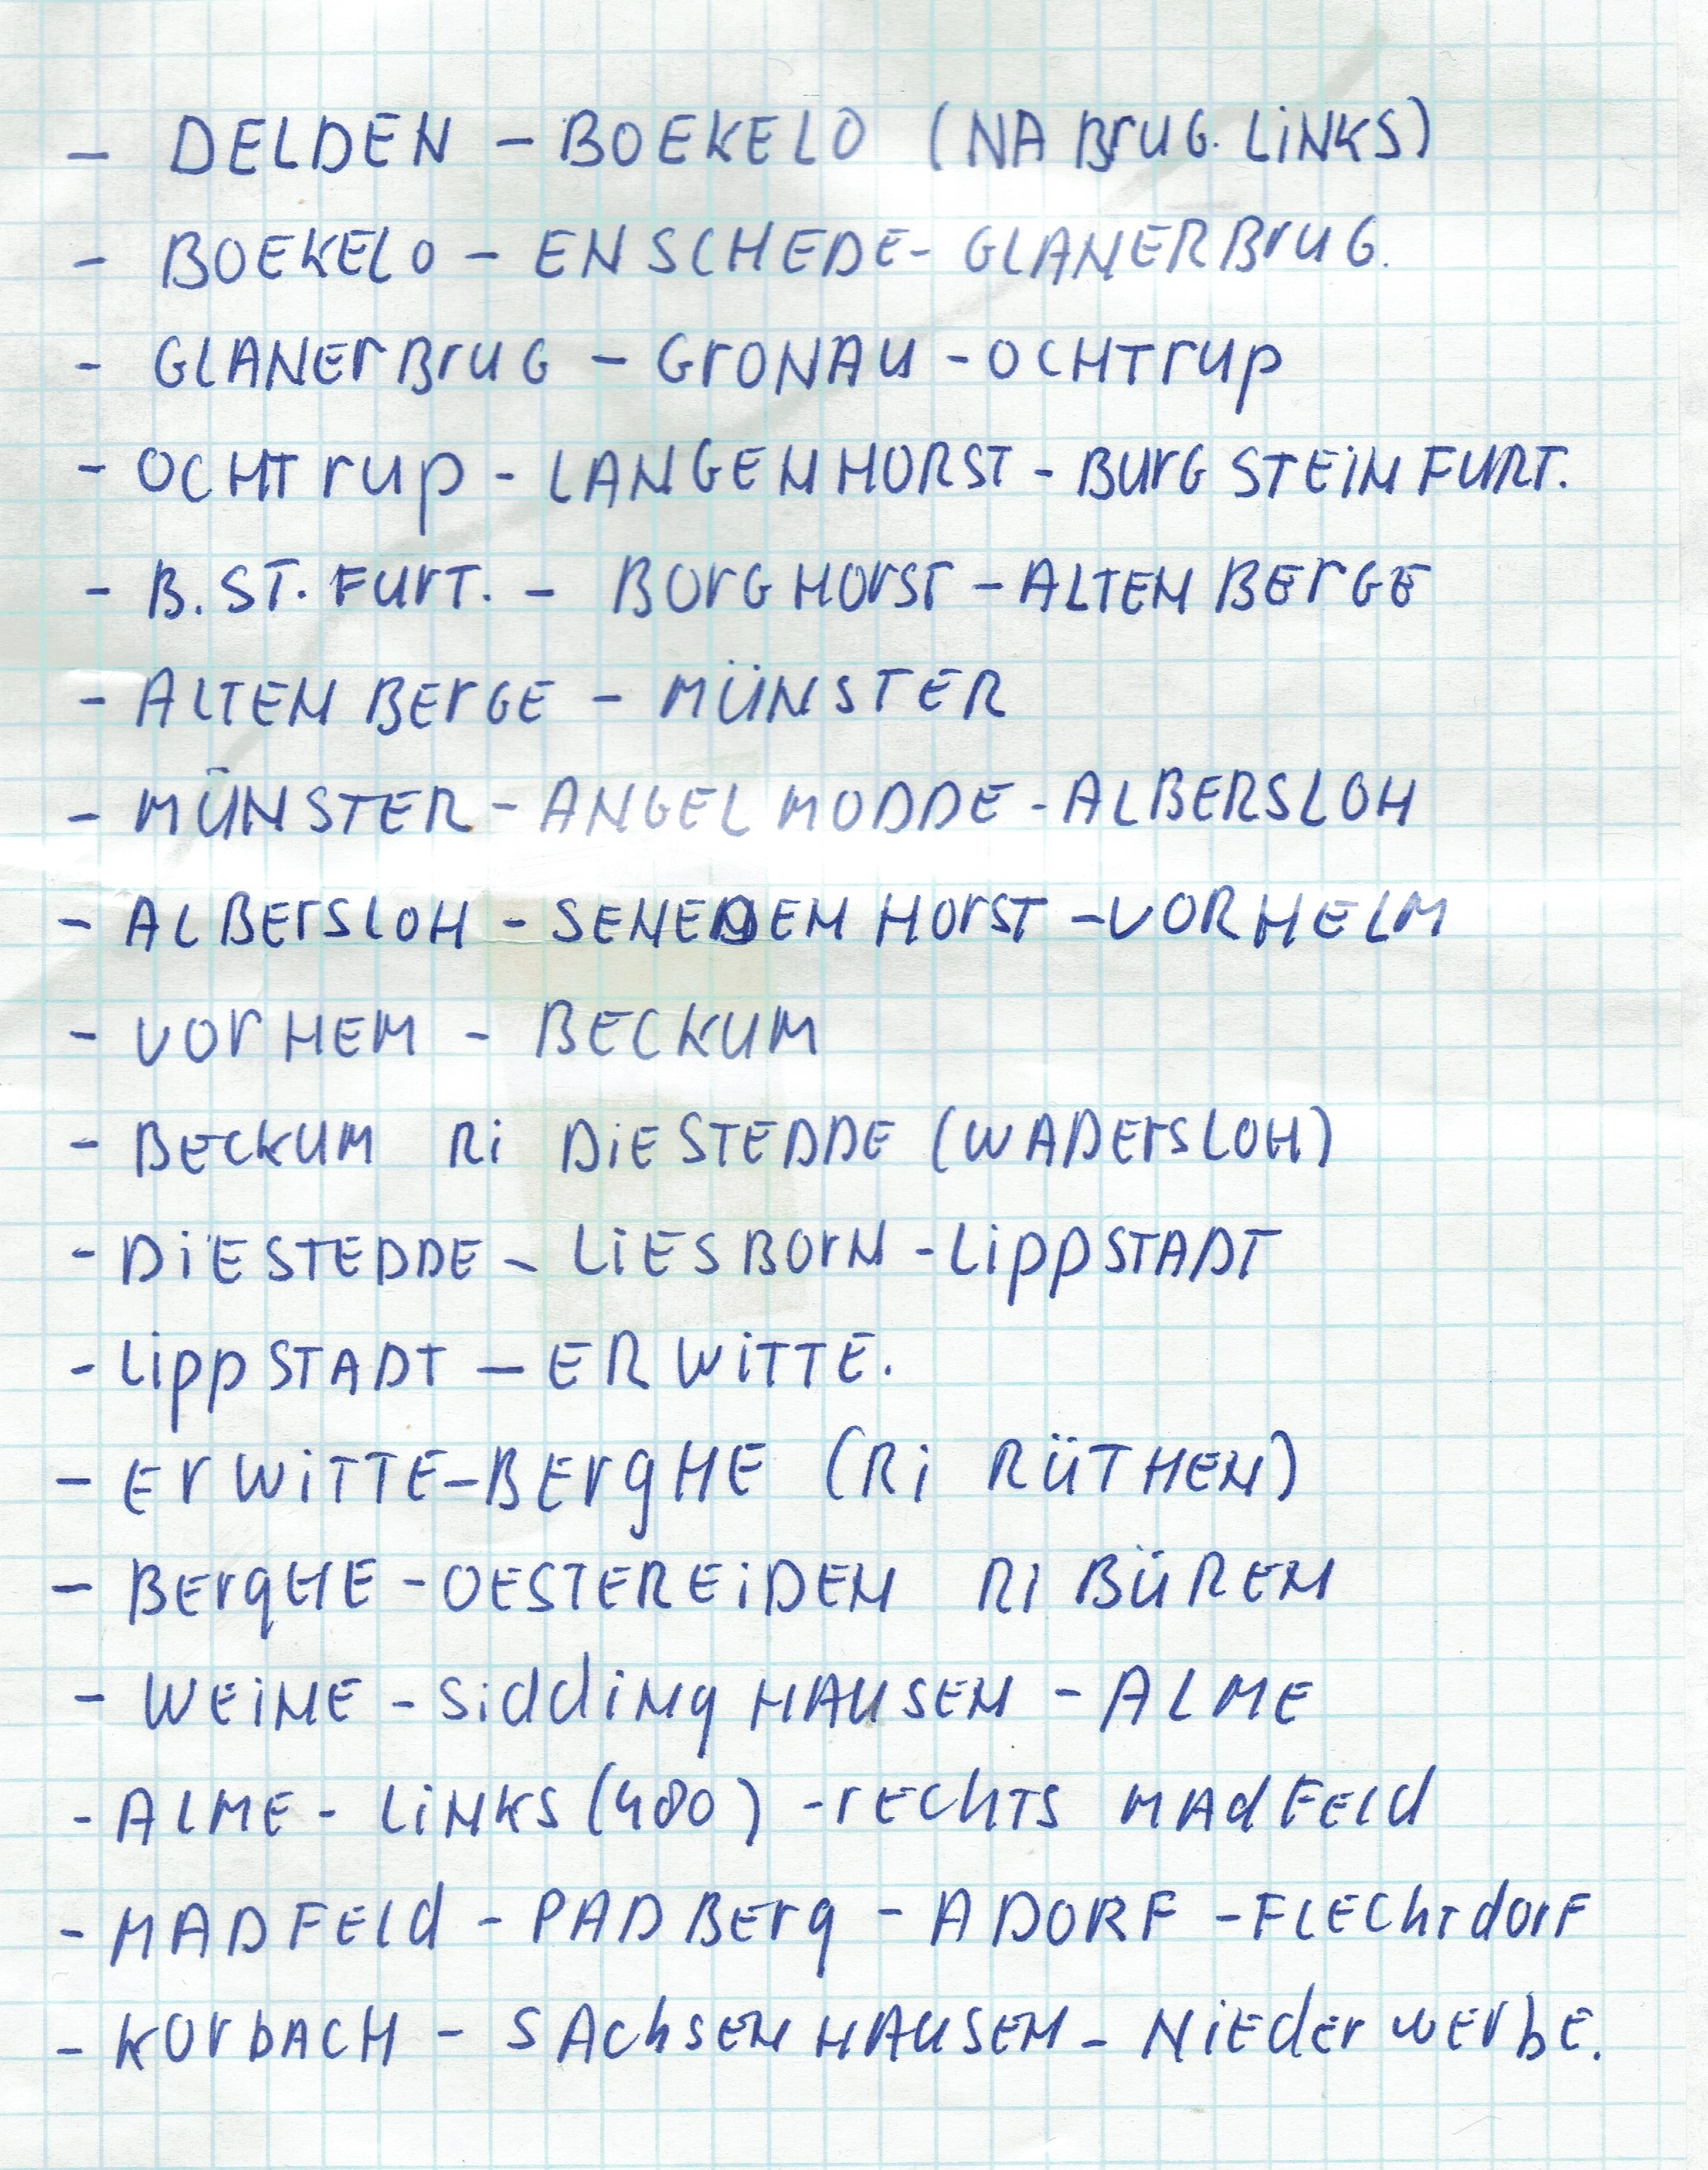 - DELDEN - BOEKELO (NA BrUG. LiNKS)
- BOEKELO - ENSCHEDE- GLANERBrUG.
- GLANErBrUG - GrONAU - OCHTrUp
- OCHTrup - LANGENHORST - BUrG STEiNFURT.
- B.ST.FUrT. - BOrGHOrST - ALTENBErGE
- ALTENBErGE - MÜNSTER
- MÜNSTER - ANGELMODDE - ALBERSLOH
- ALBErSLOH - SENEDENHOrST - VORHELM
- VOrHEM - BECKUM
- BECKUM Ri DiESTEDDE (WADErSLOH)
- DiESTEDDE - LiESBOrN - LippSTADT
- LippSTADT - ERWiTTE.
- ErWiTTE - BErgHE (Ri RÜTHEN)
- BErgHE - OESTEREiDEN Ri BÜREN
- WEiNE - SiddiNgHAUSEN - ALME
- ALME - LiNKS (480) - rEchTS MAdFEld
- MADFEld - PADBErg - ADORF - FLEChTdorF
- KOrbACH - SAchSENHAUSEN - NiEderwErbE.